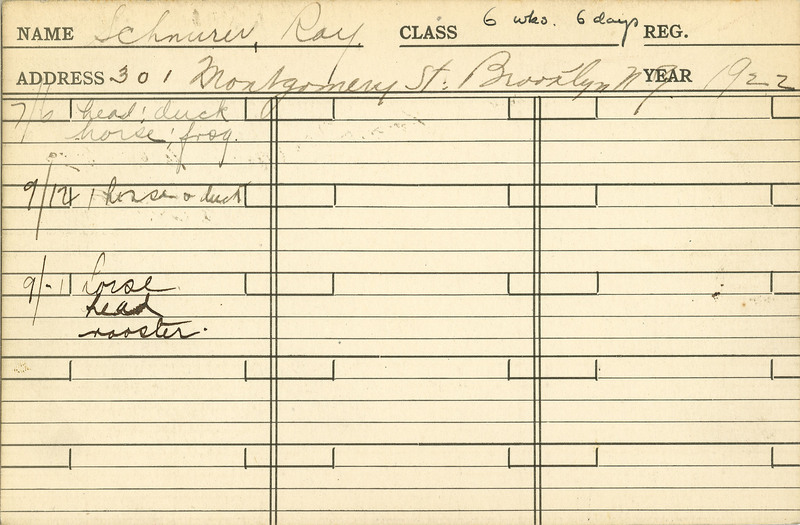 NAME Schnurer, Ray CLASS 6 wks. 6 days REG.
ADDRESS 301 Montgomery St. Brooklyn N Y YEAR 1922
7/6 head; duck
horse; frog.
9/14 horse & duck
9/-1 horse
head
rooster.